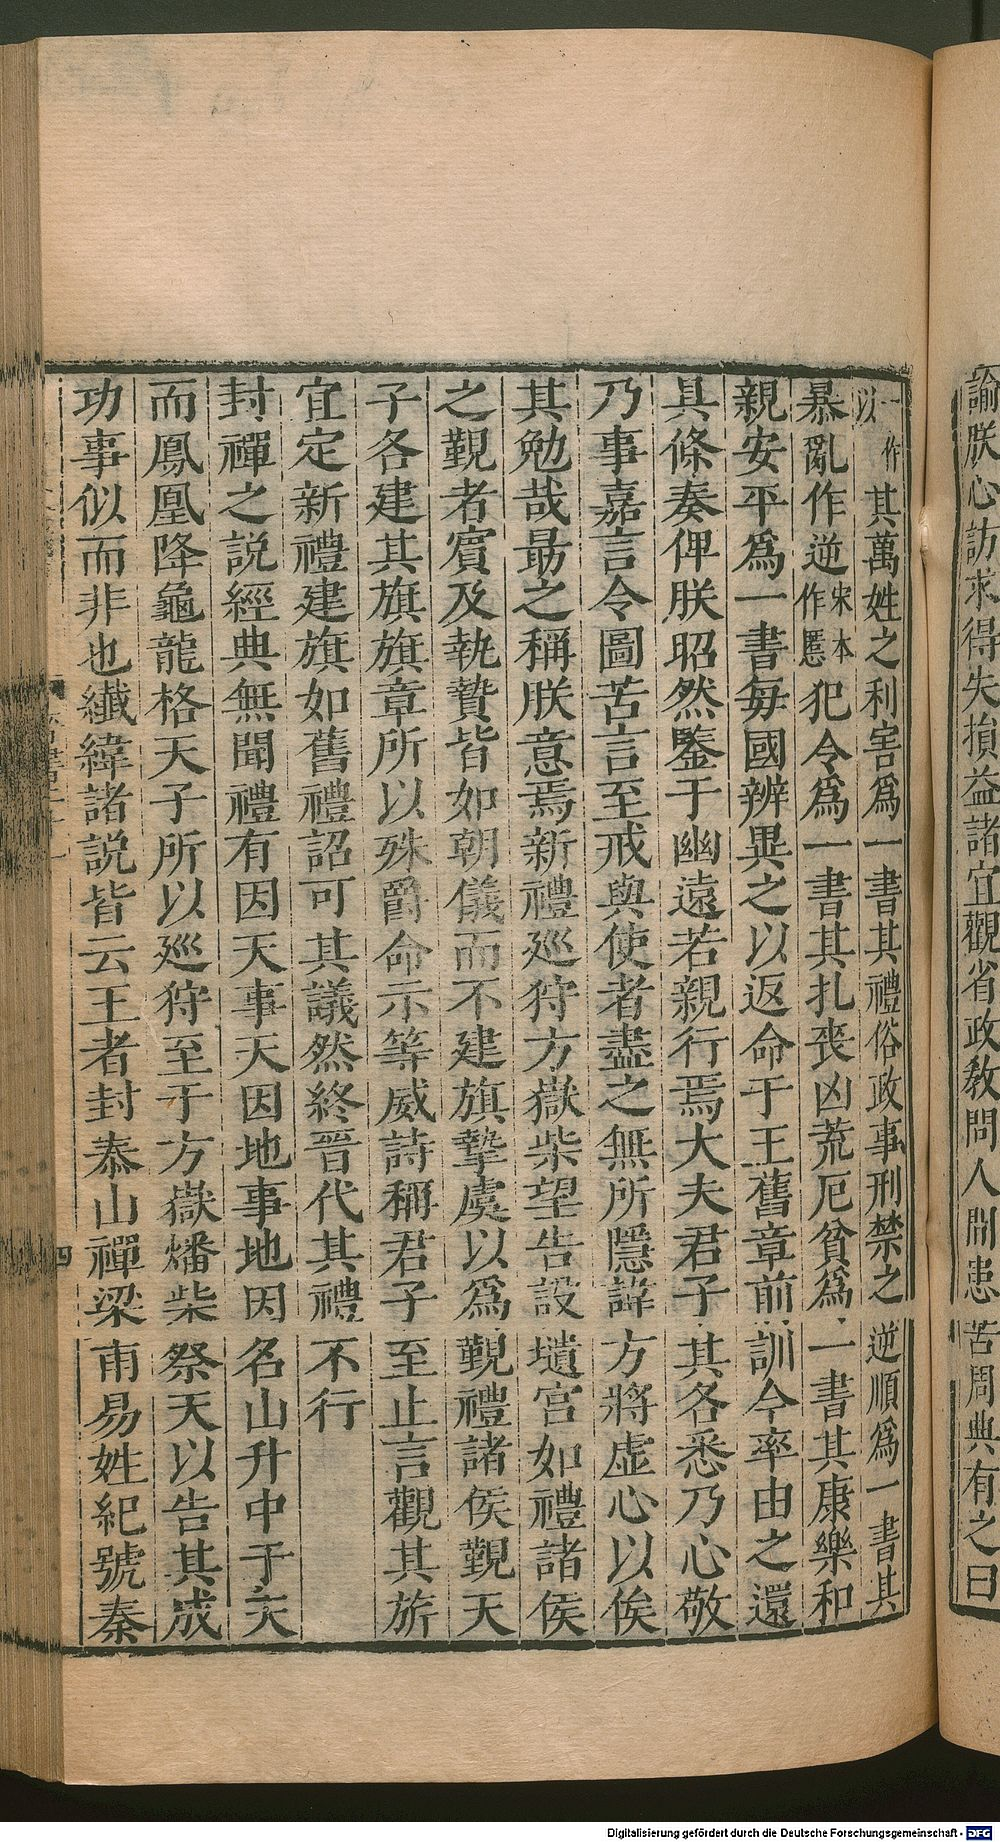 諭朕心訪求得失損益諸宜觀省政教問人間患苦周典有之曰
一作以其萬姓之利害爲一書其禮俗政事刑禁之逆順爲一書其
暴亂作逆宋本作慝犯令爲一書其札喪凶荒厄貧爲一書其康樂和
親安平爲一書每國辨異之以返命于王舊章前訓今率由之還
具條奏俾朕昭然鑒于幽遠若親行焉大夫君子其各悉乃心敬
乃事嘉言令圖苦言至戒與使者盡之無所隱諱方將虛心以俟
其勉哉勗之稱朕意焉新禮廵狩方嶽柴望告設壝宮如禮諸侯
之覲者賓及執贄皆如朝儀而不建旗摯虞以爲覲禮諸侯覲天
子各建其旗旗章所以殊爵命示等威詩稱君子至止言觀其旂
宜定新禮建旗如舊禮詔可其議然終晉代其禮不行
封禪之說經典無聞禮有因天事天因地事地因名山升中于天
而鳳凰降龜龍格天子所以廵狩至于方嶽燔柴祭天以告其成
功事似而非也纖緯諸說皆云王者封泰山禪梁甫易姓紀號秦
四
Digitalisierung gefördert durch die Deutsche Forschungsgemeinschaft - DFG